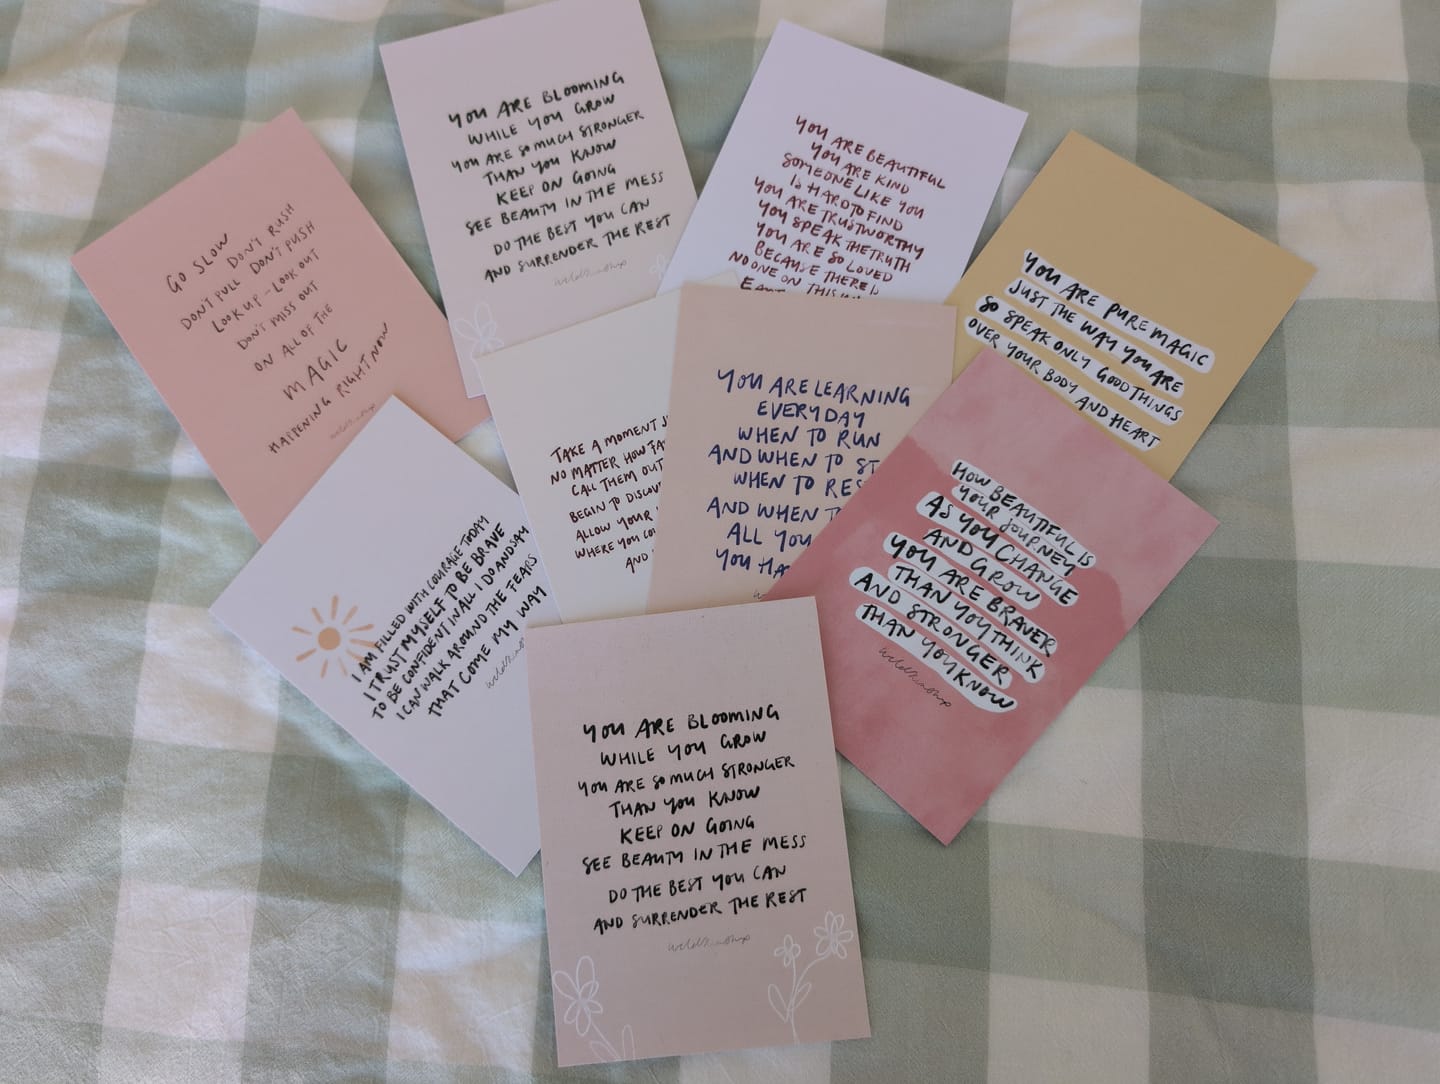 YOU ARE BLOOMING
WHILE YOU GROW
YOU ARE SO MUCH STRONGER
THAN YOU KNOW
KEEP ON GOING
SEE BEAUTY IN THE MESS
DO THE BEST YOU CAN
AND SURRENDER THE REST
YOU ARE BEAUTIFUL
YOU ARE KIND
SOMEONE LIKE YOU
IS HARD TO FIND
YOU ARE TRUSTWORTHY
YOU SPEAK THE TRUTH
YOU ARE SO LOVED
BECAUSE THERE IS
NO ONE ON THIS
GO SLOW
DON'T RUSH
DON'T PULL DON'T PUSH
LOOK UP - LOOK OUT
DON'T MISS OUT
ON ALL OF THE
MAGIC
HAPPENING RIGHT NOW
YOU ARE PURE MAGIC
JUST THE WAY YOU ARE
SO SPEAK ONLY GOOD THINGS
OVER YOUR BODY AND HEART
TAKE A MOMENT
NO MATTER HOW
CALL THEM OUT
BEGIN TO
ALLOW YOUR
WHERE YOU
AND
YOU ARE LEARNING
EVERYDAY
WHEN TO RUN
AND WHEN TO
WHEN TO
AND WHEN
ALL YOU
YOU
HOW BEAUTIFUL IS
YOUR JOURNEY
AS YOU CHANGE
AND GROW
YOU ARE BRAVER
THAN YOU THINK
AND STRONGER
THAN YOU KNOW
I AM FILLED WITH COURAGE TODAY
I TRUST MYSELF TO BE BRAVE
TO BE CONFIDENT IN ALL I DO AND SAY
I CAN WALK AROUND THE FEARS
THAT COME MY WAY
YOU ARE BLOOMING
WHILE YOU GROW
YOU ARE SO MUCH STRONGER
THAN YOU KNOW
KEEP ON GOING
SEE BEAUTY IN THE MESS
DO THE BEST YOU CAN
AND SURRENDER THE REST